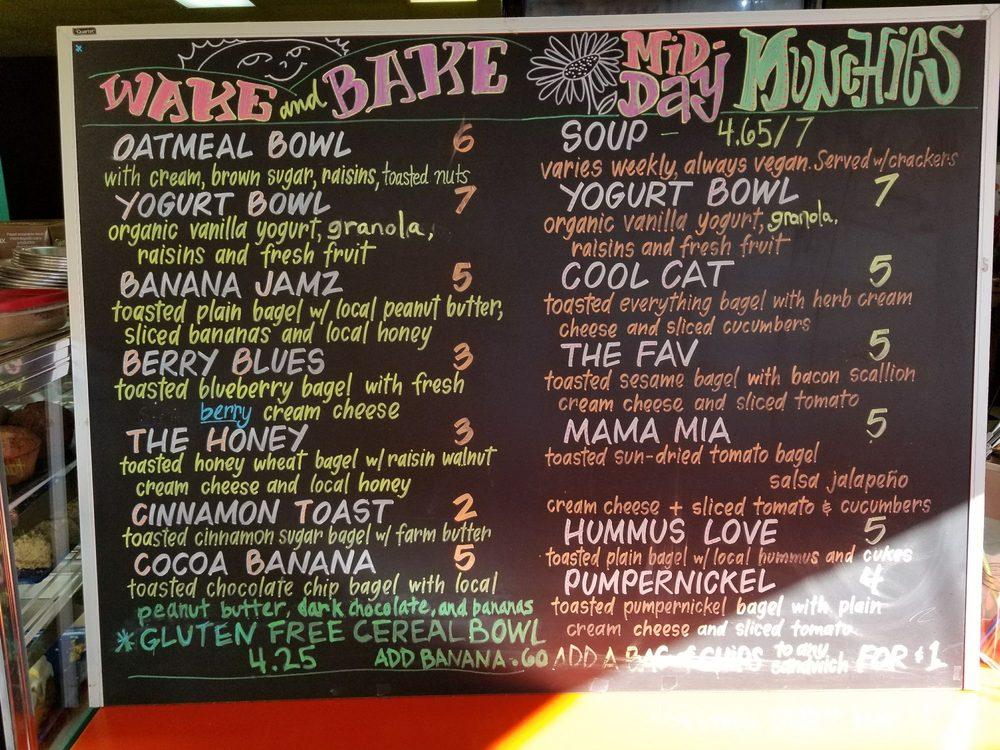 Quartet
WAKE and BAKE
OATMEAL BOWL 6
with cream, brown sugar, raisins, toasted nuts
YOGURT BOWL 7
organic vanilla yogurt, granola,
raisins and fresh fruit
BANANA JAMZ 5
toasted plain bagel w/ local peanut butter,
sliced bananas and local honey
BERRY BLUES 3
toasted blueberry bagel with fresh
berry cream cheese
THE HONEY 3
toasted honey wheat bagel w/ raisin walnut
cream cheese and local honey
CINNAMON TOAST 2
toasted cinnamon sugar bagel w/ farm butter
COCOA BANANA 5
toasted chocolate chip bagel with local
peanut butter, dark chocolate, and bananas
*GLUTEN FREE CEREAL BOWL
4.25 ADD BANANA .60
MID-
DAY MUNCHIES
SOUP - 4.65/7
varies weekly, always vegan. Served w/crackers
YOGURT BOWL 7
organic vanilla yogurt, granola,
raisins and fresh fruit
COOL CAT 5
toasted everything bagel with herb cream
cheese and sliced cucumbers
THE FAV 5
toasted sesame bagel with bacon scallion
cream cheese and sliced tomato
MAMA MIA 5
toasted sun-dried tomato bagel
salsa jalapeño
cream cheese + sliced tomato & cucumbers
HUMMUS LOVE 5
toasted plain bagel w/ local hummus and cukes
PUMPERNICKEL 4
toasted pumpernickel bagel with plain
cream cheese and sliced tomato
ADD A BAG of CHIPS to any sandwich FOR $1